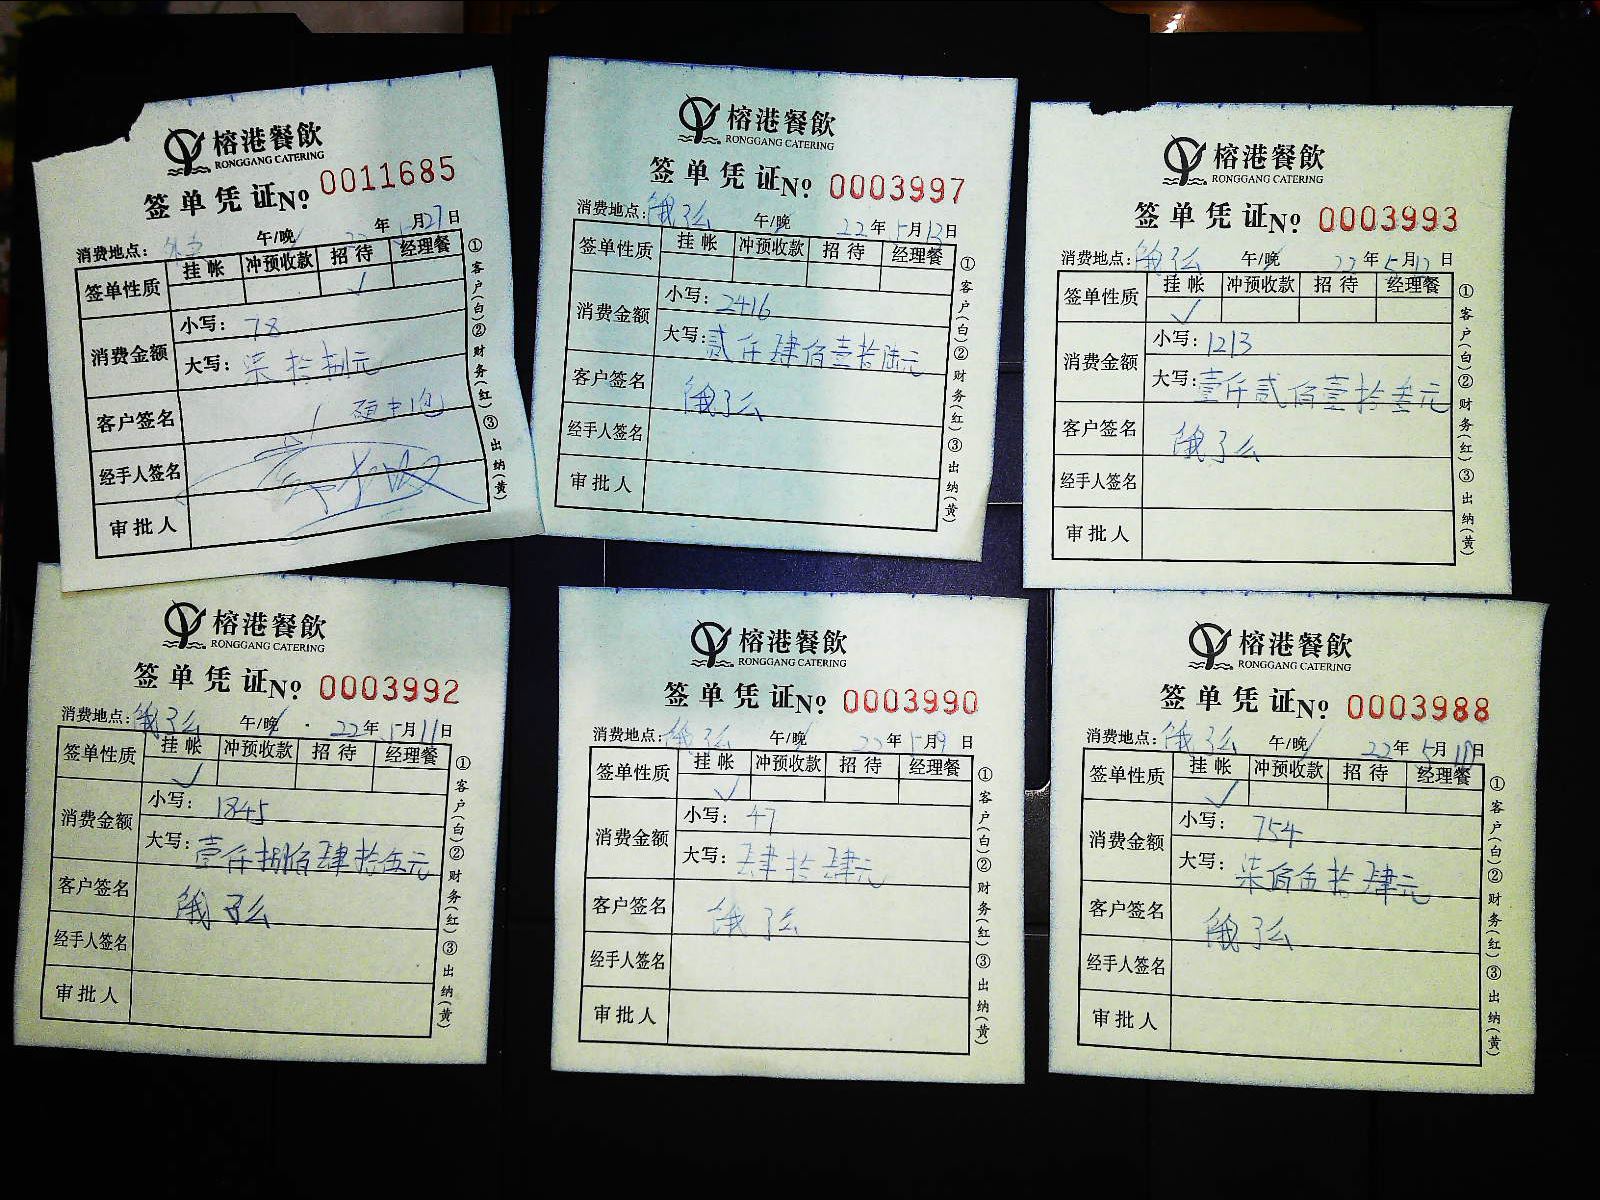 榕港餐飲
RONGGANG CATERING
签单凭证№ 0011685
消费地点： 午/晚 22年 月27日
签单性质 挂帐 冲预收款 招待 经理餐
✓
消费金额 小写：78
大写：柒拾捌元
客户签名
经手人签名
审批人
①客户(白)②财务(红)③出纳(黄)
榕港餐飲
RONGGANG CATERING
签单凭证№ 0003997
消费地点：饿了么 午/晚 22年5月12日
签单性质 挂帐 冲预收款 招待 经理餐
消费金额 小写：2416
大写：贰仟肆佰壹拾陆元
客户签名 饿了么
经手人签名
审批人
①客户(白)②财务(红)③出纳(黄)
榕港餐飲
RONGGANG CATERING
签单凭证№ 0003993
消费地点：饿了么 午/晚 22年5月12日
签单性质 挂帐 冲预收款 招待 经理餐
✓
消费金额 小写：1213
大写：壹仟贰佰壹拾叁元
客户签名 饿了么
经手人签名
审批人
①客户(白)②财务(红)③出纳(黄)
榕港餐飲
RONGGANG CATERING
签单凭证№ 0003992
消费地点：饿了么 午/晚 22年5月11日
签单性质 挂帐 冲预收款 招待 经理餐
✓
消费金额 小写：1845
大写：壹仟捌佰肆拾伍元
客户签名 饿了么
经手人签名
审批人
①客户(白)②财务(红)③出纳(黄)
榕港餐飲
RONGGANG CATERING
签单凭证№ 0003990
消费地点：饿了么 午/晚 22年5月9日
签单性质 挂帐 冲预收款 招待 经理餐
✓
消费金额 小写：47
大写：肆拾肆元
客户签名 饿了么
经手人签名
审批人
①客户(白)②财务(红)③出纳(黄)
榕港餐飲
RONGGANG CATERING
签单凭证№ 0003988
消费地点：饿了么 午/晚 22年5月 日
签单性质 挂帐 冲预收款 招待 经理餐
✓
消费金额 小写：754
大写：柒佰伍拾肆元
客户签名 饿了么
经手人签名
审批人
①客户(白)②财务(红)③出纳(黄)